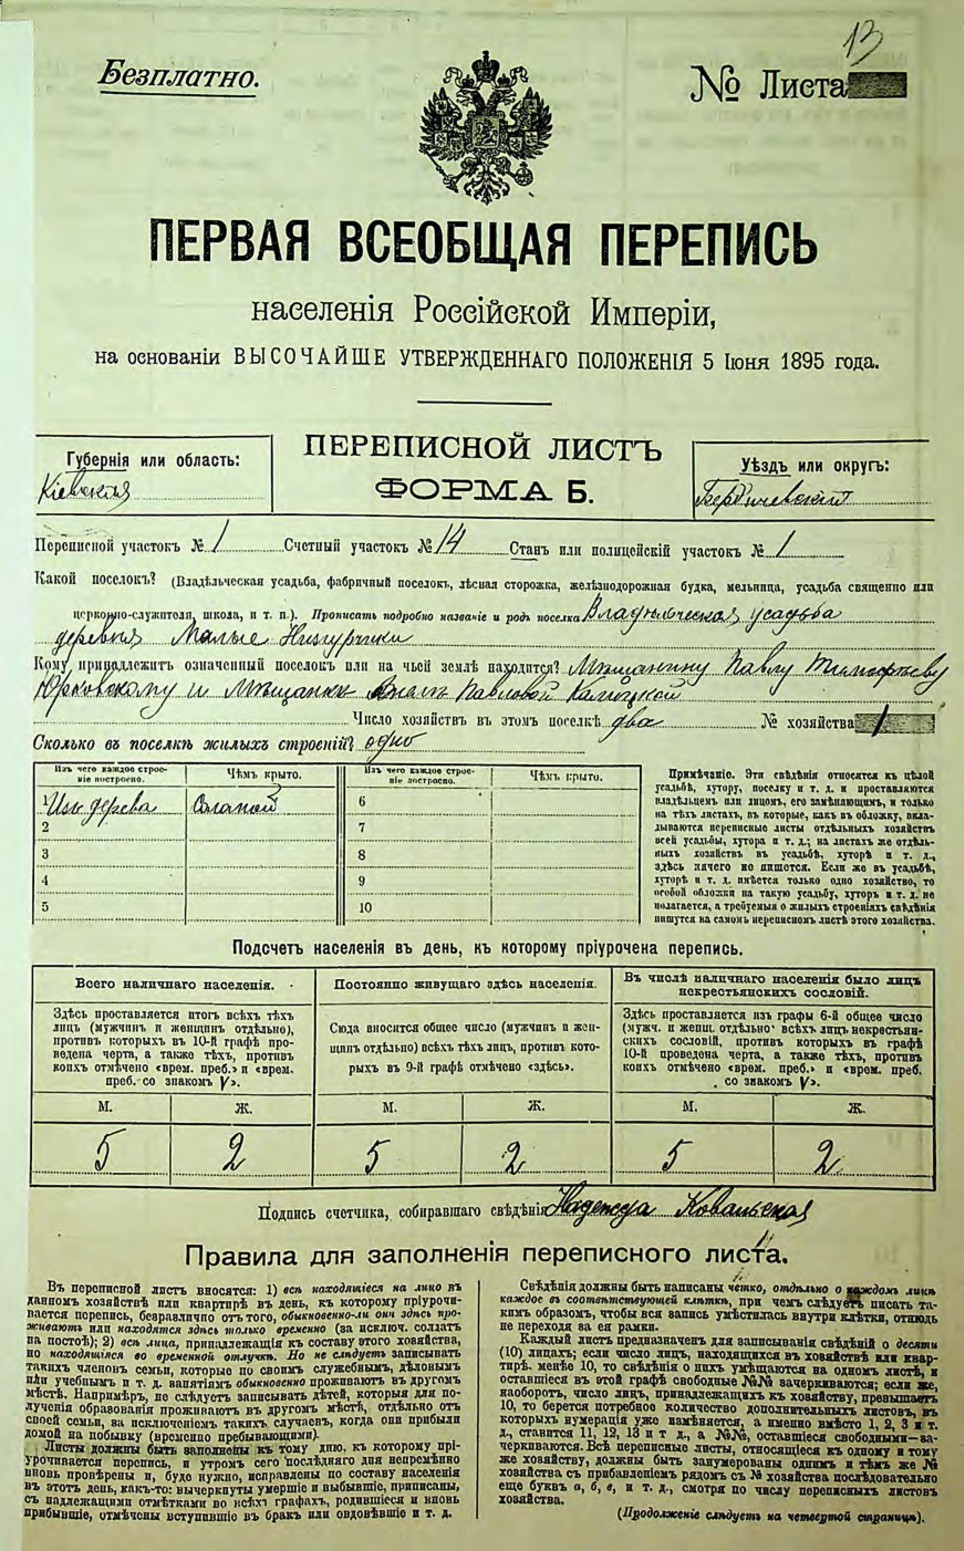 13
Безплатно.
№ Листа
ПЕРВАЯ ВСЕОБЩАЯ ПЕРЕПИСЬ
населенія Россійской Имперіи,
на основаніи ВЫСОЧАЙШЕ УТВЕРЖДЕННАГО ПОЛОЖЕНІЯ 5 Іюня 1895 года.
ПЕРЕПИСНОЙ ЛИСТЪ
ФОРМА Б.
Губернія или область:
Кіевская
Уѣздъ или округъ:
Бердичевскій
Переписной участокъ № 1 Счетный участокъ № 14 Станъ или полицейскій участокъ № 1
Какой поселокъ? (Владѣльческая усадьба, фабричный поселокъ, лѣсная сторожка, желѣзнодорожная будка, мельница, усадьба священно или
церковно-служителя, школа, и т. п.). Прописать подробно названіе и родъ поселка Владѣльческая усадьба
деревня Малые Низгурчики
Кому принадлежитъ означенный поселокъ или на чьей землѣ находится? Мѣщанину Павлу Тимофѣеву
Юрковскому и Мѣщанкѣ Павловой
Число хозяйствъ въ этомъ поселкѣ два № хозяйства 1
Сколько въ поселкѣ жилыхъ строеній? одно
Изъ чего каждое строеніе построено. Чѣмъ крыто. Изъ чего каждое строеніе построено. Чѣмъ крыто.
1 Изъ дерева Соломой 6
2 7
3 8
4 9
5 10
Примѣчаніе. Эти свѣдѣнія относятся къ цѣлой
усадьбѣ, хутору, поселку и т. д. и проставляются
владѣльцемъ или лицомъ, его замѣняющимъ, и только
на тѣхъ листахъ, въ которые, какъ въ обложку, вкла-
дываются переписные листы отдѣльныхъ хозяйствъ
всей усадьбы, хутора и т. д.; на листахъ же отдѣль-
ныхъ хозяйствъ въ усадьбѣ, хуторѣ и т. д.,
здѣсь ничего не пишется. Если же въ усадьбѣ,
хуторѣ и т. д. имѣется только одно хозяйство, то
особой обложки на такую усадьбу, хуторъ и т. д. не
полагается, а требуемыя о жилыхъ строеніяхъ свѣдѣнія
пишутся на самомъ переписномъ листѣ этого хозяйства.
Подсчетъ населенія въ день, къ которому пріурочена перепись.
Всего наличнаго населенія.
Здѣсь проставляется итогъ всѣхъ тѣхъ
лицъ (мужчинъ и женщинъ отдѣльно),
противъ которыхъ въ 10-й графѣ про-
ведена черта, а также тѣхъ, противъ
коихъ отмѣчено «врем. преб.» и «врем.
преб. со знакомъ V».
М. Ж.
5 2
Постоянно живущаго здѣсь населенія.
Сюда вносится общее число (мужчинъ и жен-
щинъ отдѣльно) всѣхъ тѣхъ лицъ, противъ кото-
рыхъ въ 9-й графѣ отмѣчено «здѣсь».
М. Ж.
5 2
Въ числѣ наличнаго населенія было лицъ
некрестьянскихъ сословій.
Здѣсь проставляется изъ графы 6-й общее число
(мужч. и женщ. отдѣльно) всѣхъ лицъ некрестьян-
скихъ сословій, противъ которыхъ въ графѣ
10-й проведена черта, а также тѣхъ, противъ
коихъ отмѣчено «врем. преб.» и «врем. преб.
со знакомъ V».
М. Ж.
5 2
Подпись счетчика, собиравшаго свѣдѣнія Надежда Ковальская
Правила для заполненія переписного листа.
Въ переписной листъ вносятся: 1) всѣ находящіеся на лицо въ
данномъ хозяйствѣ или квартирѣ въ день, къ которому пріурочи-
вается перепись, безразлично отъ того, обыкновенно-ли они здѣсь про-
живаютъ или находятся здѣсь только временно (за исключ. солдатъ
на постоѣ); 2) всѣ лица, принадлежащія къ составу этого хозяйства,
но находящіяся во временной отлучкѣ. Но не слѣдуетъ записывать
такихъ членовъ семьи, которые по своимъ служебнымъ, дѣловымъ
или учебнымъ и т. д. занятіямъ обыкновенно проживаютъ въ другомъ
мѣстѣ. Напримѣръ, не слѣдуетъ записывать дѣтей, которыя для по-
лученія образованія проживаютъ въ другомъ мѣстѣ, отдѣльно отъ
своей семьи, за исключеніемъ такихъ случаевъ, когда они прибыли
домой на побывку (временно пребывающими).
Листы должны быть заполнены къ тому дню, къ которому прі-
урочивается перепись, и утромъ сего послѣдняго дня непремѣнно
вновь провѣрены и, буде нужно, исправлены по составу населенія
въ этотъ день, какъ-то: вычеркнуты умершіе и выбывшіе, приписаны,
съ надлежащими отмѣтками во всѣхъ графахъ, родившіеся и вновь
прибывшіе, отмѣчены вступившіе въ бракъ или овдовѣвшіе и т. д.
Свѣдѣнія должны быть написаны четко, отдѣльно о каждомъ лицѣ
каждое въ соотвѣтствующей клѣткѣ, при чемъ слѣдуетъ писать та-
кимъ образомъ, чтобы вся запись умѣстилась внутри клѣтки, отнюдь
не переходя за ея рамки.
Каждый листъ предназначенъ для записыванія свѣдѣній о десяти
(10) лицахъ; если число лицъ, находящихся въ хозяйствѣ или квар-
тирѣ менѣе 10, то свѣдѣнія о нихъ умѣщаются на одномъ листѣ, и
оставшіеся въ этой графѣ свободные №№ зачеркиваются; если же,
наоборотъ, число лицъ, принадлежащихъ къ хозяйству, превышаетъ
10, то берется потребное количество дополнительныхъ листовъ, въ
которыхъ нумерація уже измѣняется, а именно вмѣсто 1, 2, 3 и т.
д., ставится 11, 12, 13 и т. д., а №№, оставшіеся свободными—за-
черкиваются. Всѣ переписные листы, относящіеся къ одному и тому
же хозяйству, должны быть занумерованы однимъ и тѣмъ же №
хозяйства съ прибавленіемъ рядомъ съ № хозяйства послѣдовательно
еще буквъ а, б, в, и т. д., смотря по числу переписныхъ листовъ
хозяйства.
(Продолженіе слѣдуетъ на четвертой страницѣ).